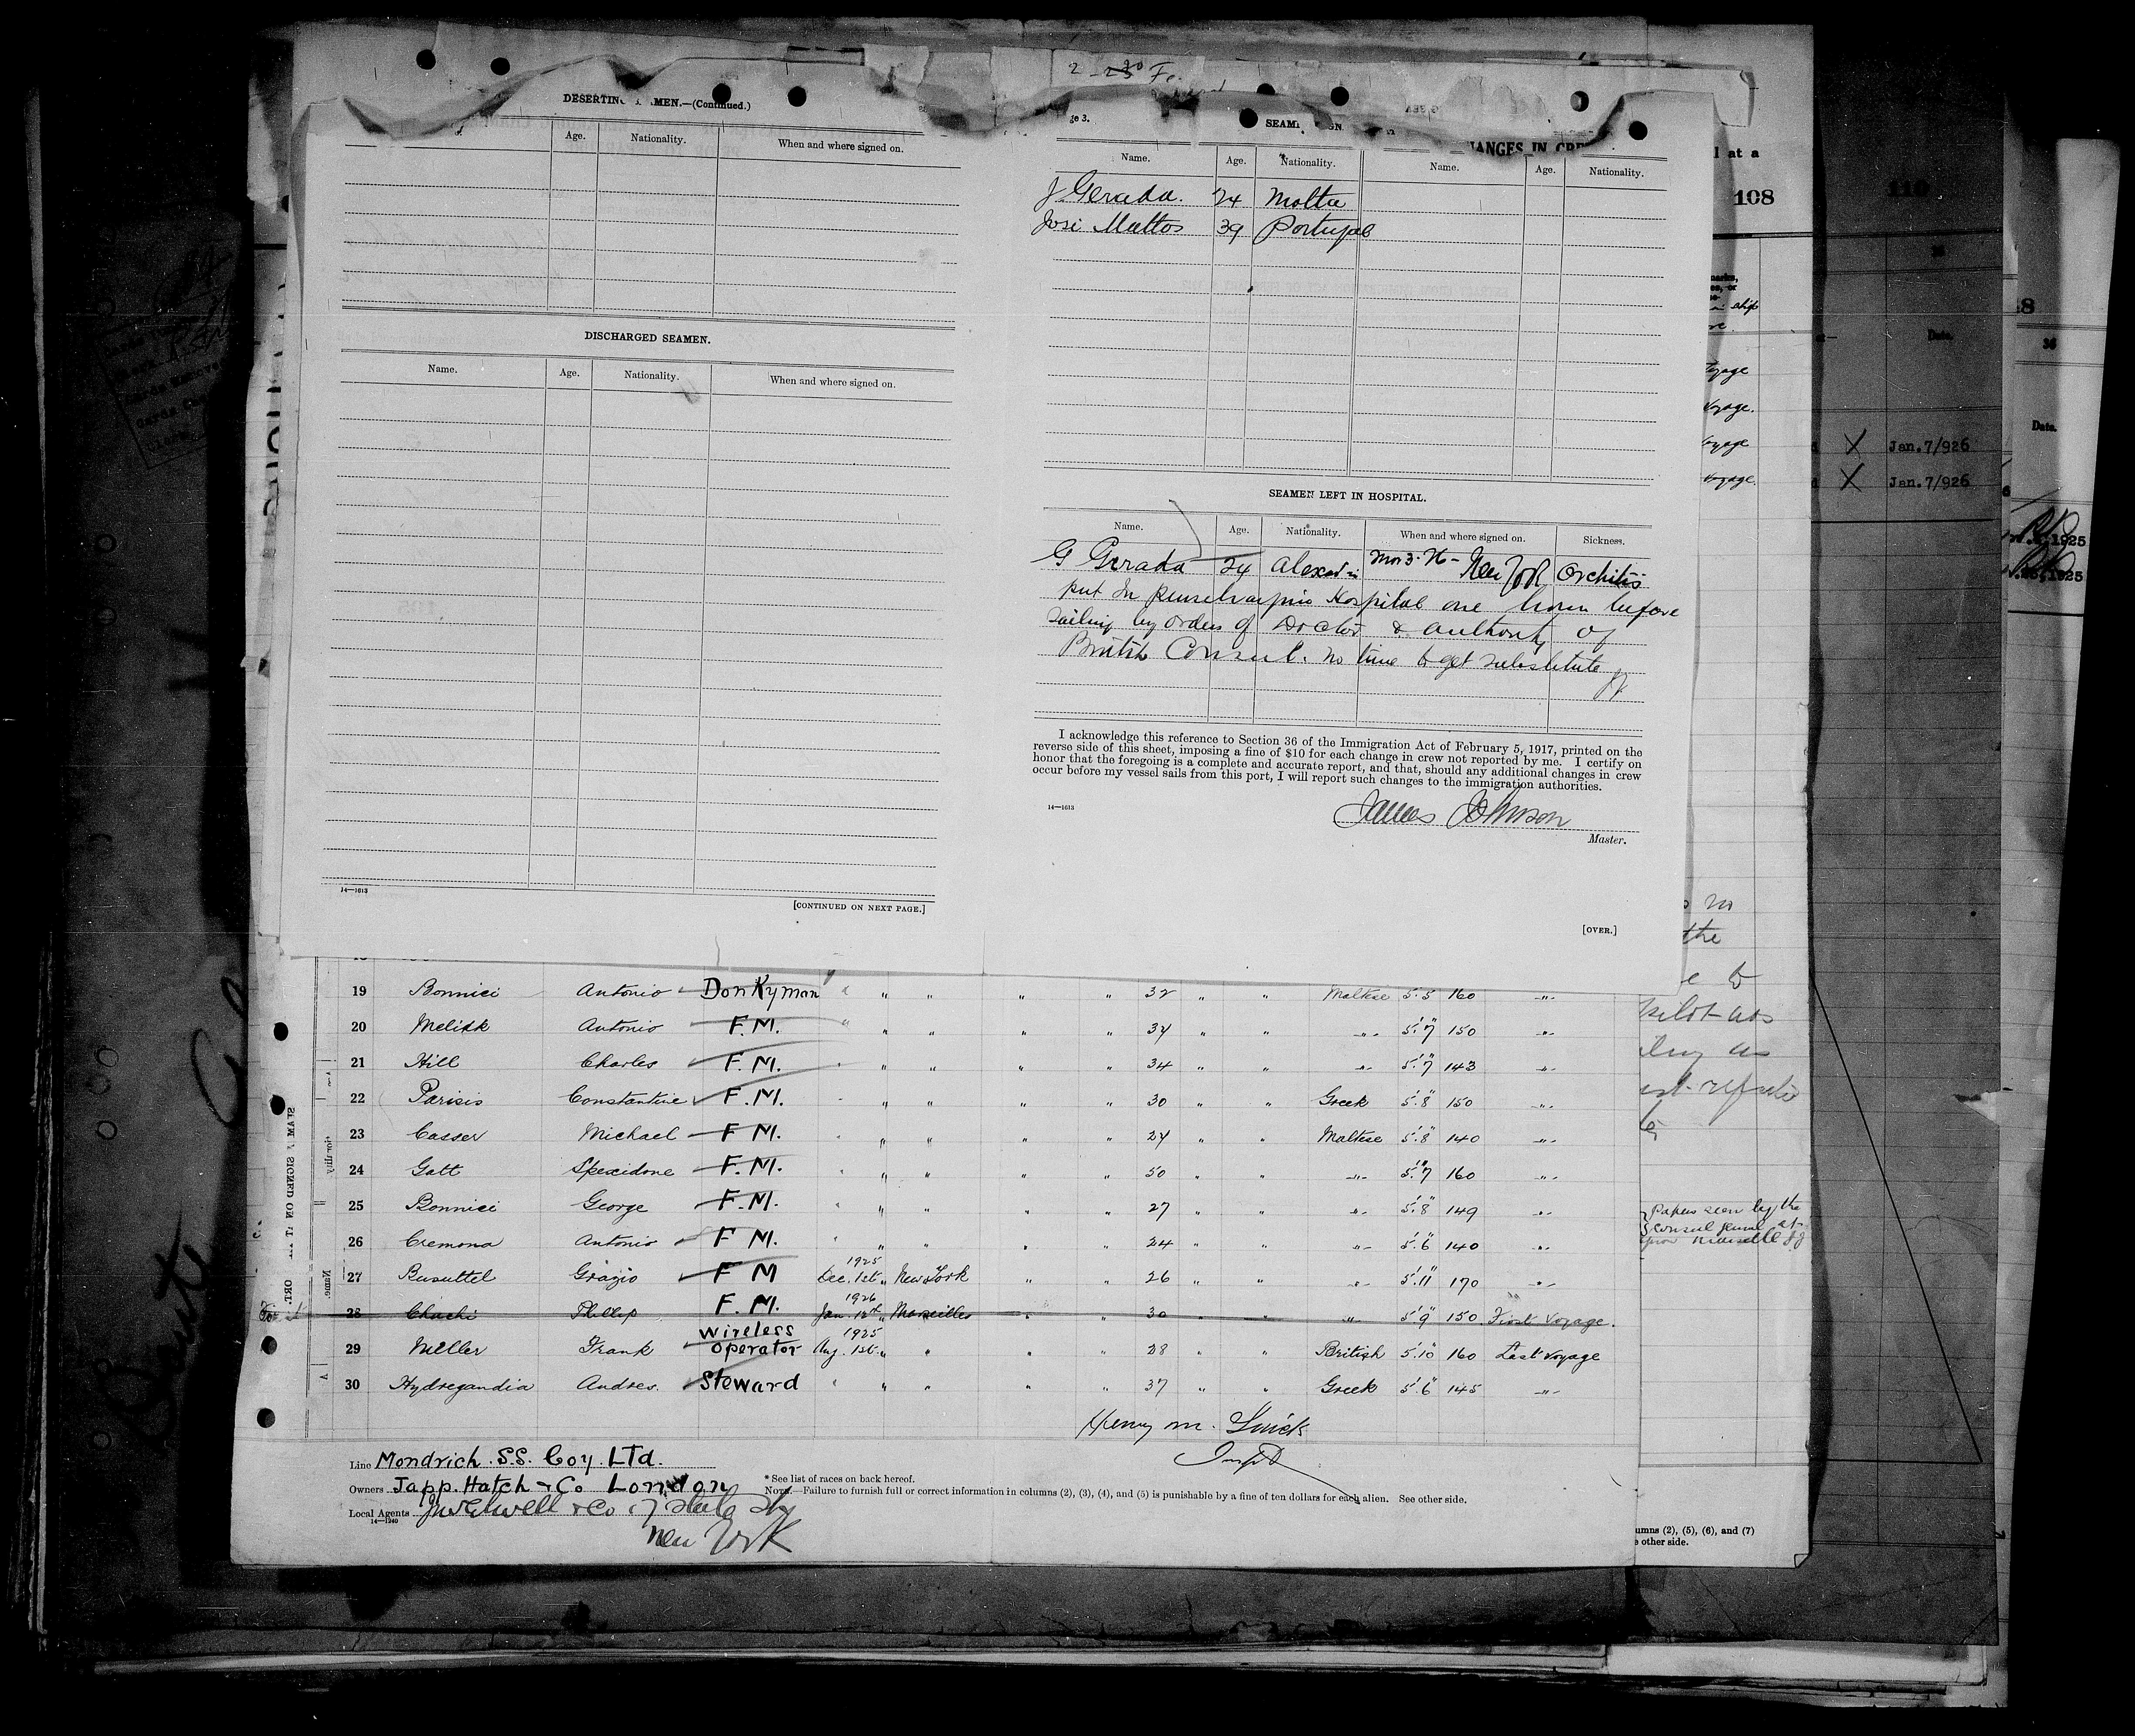 DESERTING SEAMEN.—(Continued.)
Age. Nationality. When and where signed on.
DISCHARGED SEAMEN.
Name. Age. Nationality. When and where signed on.
14—1613
[CONTINUED ON NEXT PAGE.]
ge 3.
SEAM
ANGES IN CRE
Name. Age. Nationality. Name. Age. Nationality.
J Gerada. 24 Malta
Jose Mattos 39 Portugal
SEAMEN LEFT IN HOSPITAL.
Name. Age. Nationality. When and where signed on. Sickness.
G Gerada 24 New York Orchitis
put in Hospital one hour before
sailing by orders of Doctor & authority of
British Consul. no time to get substitute
I acknowledge this reference to Section 36 of the Immigration Act of February 5, 1917, printed on the
reverse side of this sheet, imposing a fine of $10 for each change in crew not reported by me. I certify on
honor that the foregoing is a complete and accurate report, and that, should any additional changes in crew
occur before my vessel sails from this port, I will report such changes to the immigration authorities.
14—1613
James Johnson
Master.
[OVER.]
19 Bonnici Antonio Donkyman " " " " 32 " " Maltese 5'.5 160 -"-
20 Antonio F.M. " " " " " 34 " " -"- 5'.7" 150 -"-
21 Hill Charles F.M. " " " " 34 " " -"- 5'.7" 143 -"-
22 Parisis Constantine F.M. " " " " 30 " " Greek 5'.8" 150 -"-
23 Casser Michael F.M. " " " " 24 " " Maltese 5'.8" 140 -"-
24 Gatt F.M. " " " " 50 " " -"- 5'.7" 160 -"-
25 Bonnici George F.M. " " " " 27 " " -"- 5'.8" 149 -"-
26 Cremona Antonio F.M. " " " " 24 " " -"- 5'.6" 140 -"-
27 Busuttel Grazio F.M 1925 Dec. 1st " New York " " 26 " " -"- 5'.11" 170 -"-
28 Chachi Phillip F.M. 1926 Jan. 12th " Marseilles " " 30 " " -"- 5'.9" 150 First Voyage.
29 Miller Frank Wireless Operator 1925 Aug. 1st " " " " 28 " " British 5'.10" 160 Last Voyage
30 Hydregandia Andres. Steward " " " " " 37 " " Greek 5'.6" 145 -"-
Henry M.
Line Mondrich. S.S. Coy. LTd.
Owners Japp. Hatch & Co London
Local Agents
14—1240
New York
* See list of races on back hereof.
NOTE.—Failure to furnish full or correct information in columns (2), (3), (4), and (5) is punishable by a fine of ten dollars for each alien. See other side.
l at a
108
ship
Voyage
Voyage.
Voyage
Voyage.
the
Papers seen by the
umns (2), (5), (6), and (7)
e other side.
110
Date.
X Jan.7/926
X Jan.7/926
36
Date.
1925
1925